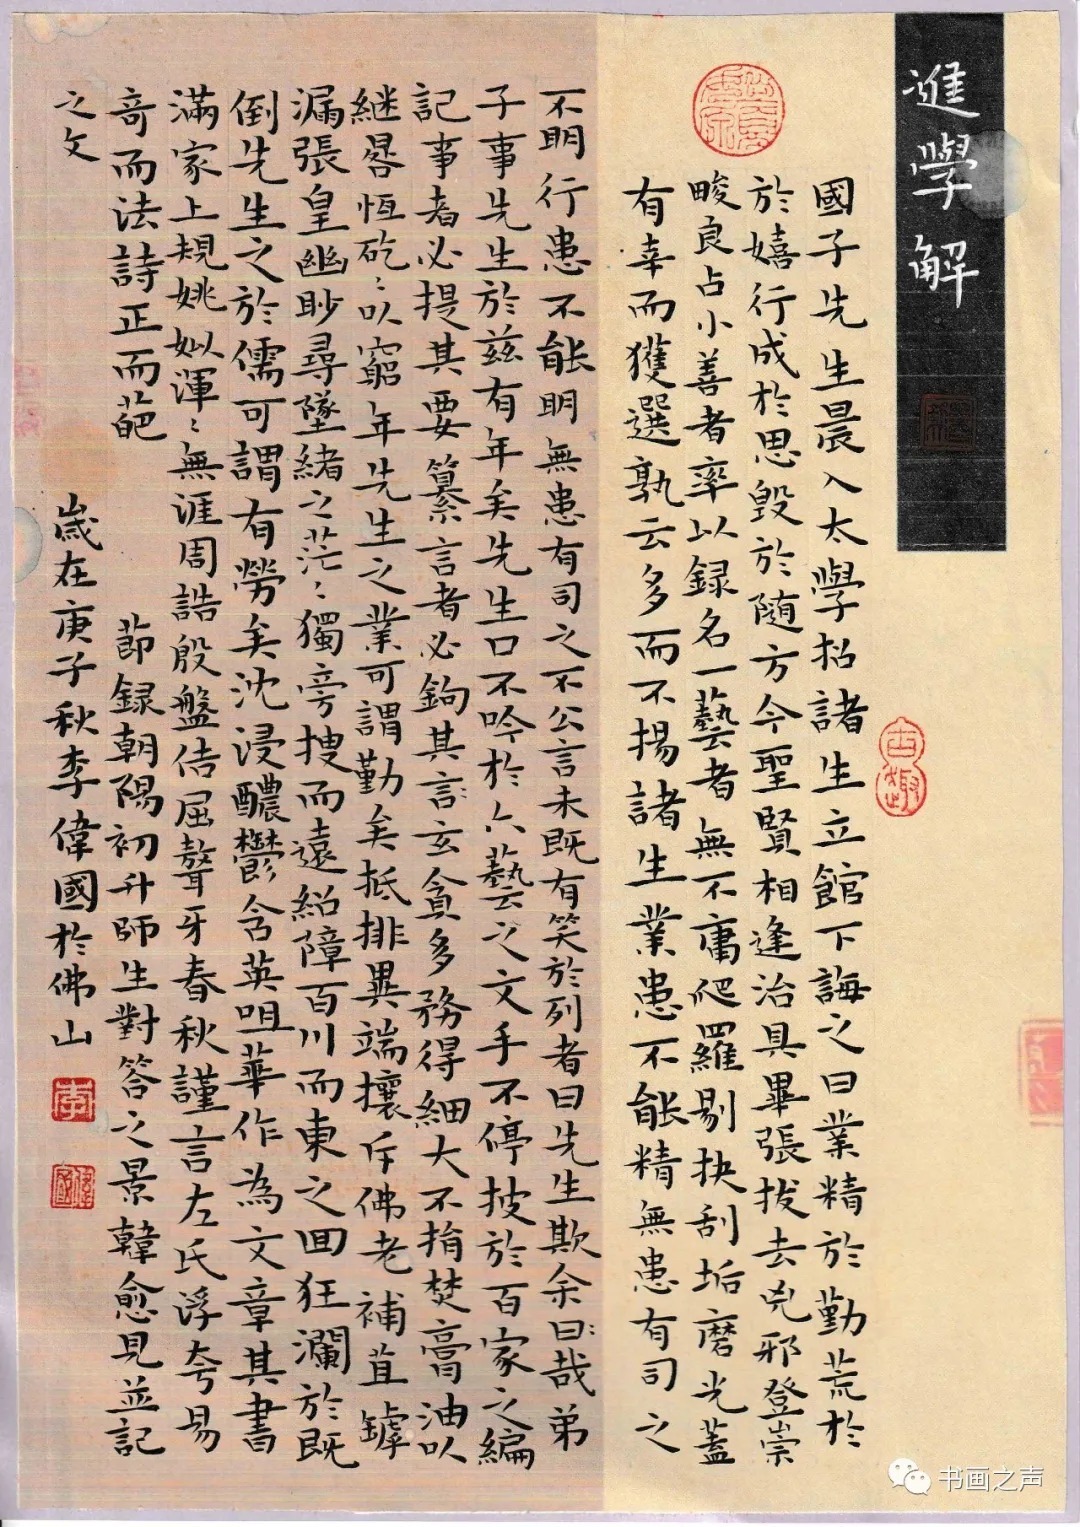 進學解
國子先生晨入太學招諸生立館下誨之曰業精於勤荒於
於嬉行成於思毀於随方今聖賢相逢治具畢張拔去兇邪登崇
畯良占小善者率以録名一藝者無不庸爬羅剔抉刮垢磨光蓋
有幸而獲選孰云多而不揚諸生業患不能精無患有司之
不明行患不能明無患有司之不公言未既有笑於列者曰先生欺余曰:哉弟
子事先生於兹有年矣先生口不吟於六藝之文手不停披於百家之編
記事者必提其要纂言者必鉤其言:玄貪多務得細大不捐焚膏油以
継晷恆矻:以窮年先生之業可謂勤矣抵排異端攘斥佛老補苴罅
漏張皇幽眇尋墜緒之茫:獨旁搜而遠紹障百川而東之回狂瀾於既
倒先生之於儒可謂有勞矣沈浸醲鬱含英咀華作為文章其書
滿家上規姚姒渾:無涯周誥殷盤佶屈聱牙春秋謹言左氏浮夸易
奇而法詩正而葩 節録朝陽初升師生對答之景韓愈見並記
之文 歲在庚子秋李偉國於佛山
李
书画之声